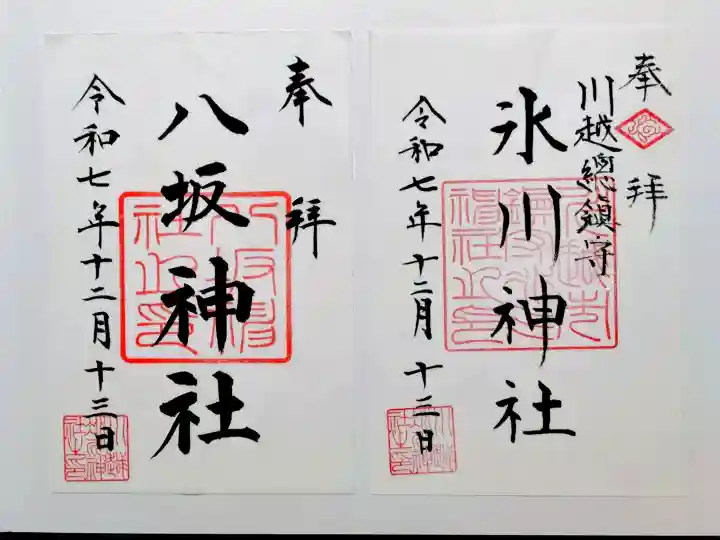 奉拝
川越總鎮守
氷川神社
令和七年十二月十三日
奉拝
八坂神社
令和七年十二月十三日